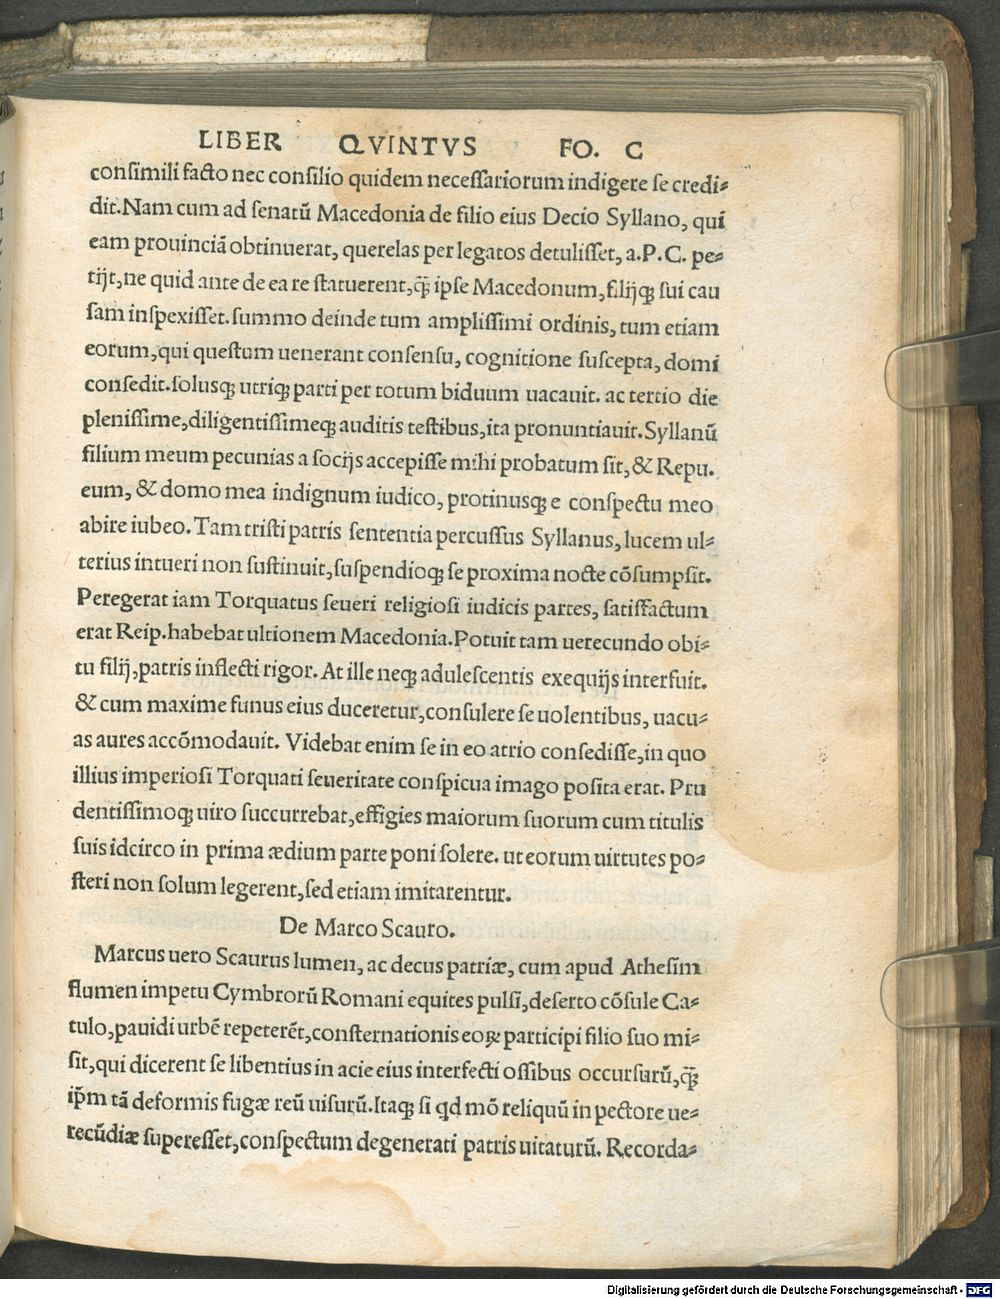 LIBER QVINTVS FO. C
conſimili facto nec conſilio quidem neceſſariorum indigere ſe credi⸗
dit.Nam cum ad ſenatū Macedonia de filio eius Decio Syllano, qui
eam prouinciā obtinuerat, querelas per legatos detuliſſet, a.P.C. pe⸗
tijt,ne quid ante de ea re ſtatuerent,q̄ ipſe Macedonum,filijqꝫ ſui cau
ſam inſpexiſſet.ſummo deinde tum ampliſſimi ordinis, tum etiam
eorum,qui queſtum uenerant conſenſu, cognitione ſuſcepta, domi
conſedit.ſoluſqꝫ utriqꝫ parti per totum biduum uacauit. ac tertio die
pleniſſime,diligentiſſimeqꝫ auditis teſtibus,ita pronuntiauit.Syllanū
filium meum pecunias a ſocijs accepiſſe mihi probatum ſit, & Repu.
eum, & domo mea indignum iudico, protinuſqꝫ e conſpectu meo
abire iubeo.Tam triſti patris ſententia percuſſus Syllanus, lucem ul⸗
terius intueri non ſuſtinuit,ſuſpendioqꝫ ſe proxima nocte cōſumpſit.
Peregerat iam Torquatus ſeueri religioſi iudicis partes, ſatiſfactum
erat Reip.habebat ultionem Macedonia.Potuit tam uerecundo obi⸗
tu filij,patris inflecti rigor. At ille neqꝫ aduleſcentis exequijs interfuit.
& cum maxime funus eius duceretur,conſulere ſe uolentibus, uacu⸗
as aures accōmodauit. Videbat enim ſe in eo atrio conſediſſe,in quo
illius imperioſi Torquati ſeueritate conſpicua imago poſita erat. Pru
dentiſſimoqꝫ uiro ſuccurrebat,effigies maiorum ſuorum cum titulis
ſuis idcirco in prima ædium parte poni ſolere. ut eorum uirtutes po⸗
ſteri non ſolum legerent,ſed etiam imitarentur.
De Marco Scauro.
Marcus uero Scaurus lumen, ac decus patriæ, cum apud Atheſim
flumen impetu Cymbrorū Romani equites pulſi,deſerto cōſule Ca⸗
tulo,pauidi urbē repeterēt,conſternationis eoꝝ participi filio ſuo mi⸗
ſit,qui dicerent ſe libentius in acie eius interfecti oſſibus occurſurū,q̄
ip̄m tā deformis fugæ reū uiſurū.Itaqꝫ ſi qd mō reliquū in pectore ue⸗
recūdiæ ſupereſſet,conſpectum degenerati patris uitaturū. Recorda⸗
Digitalisierung gefördert durch die Deutsche Forschungsgemeinschaft - DFG